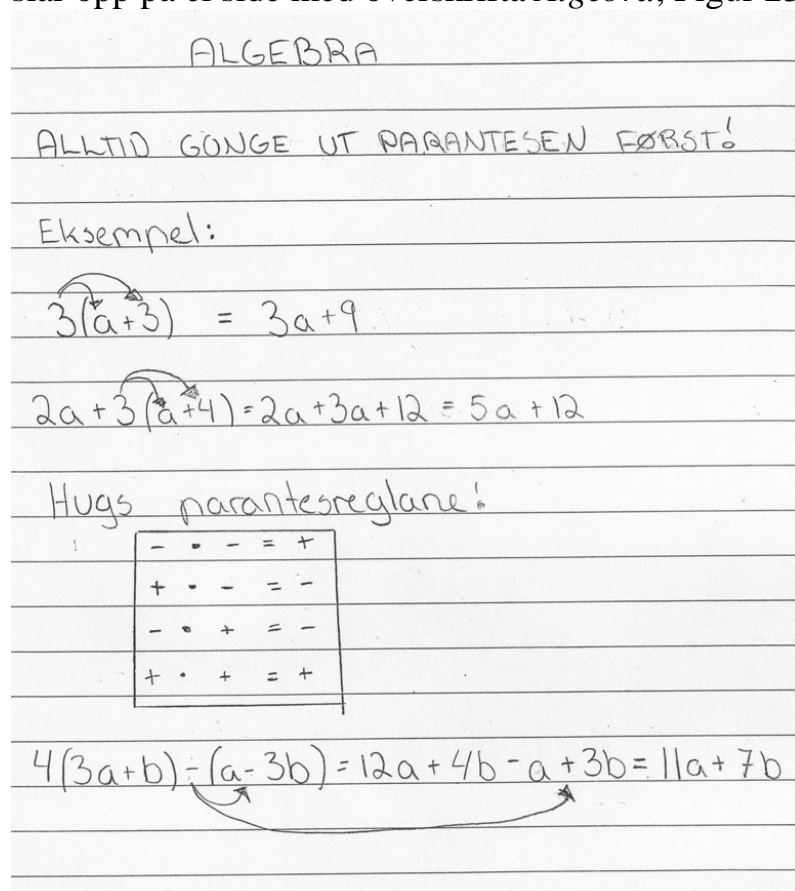 ALGEBRA
ALLTID GONGE UT PARANTESEN FØRST!
Eksempel:
3(a+3) = 3a+9
2a+3(a+4)=2a+3a+12=5a+12
Hugs parantesreglane!
- • - = +
+ • - = -
- • + = -
+ • + = +
4(3a+b)-(a-3b)=12a+4b-a+3b=11a+7b